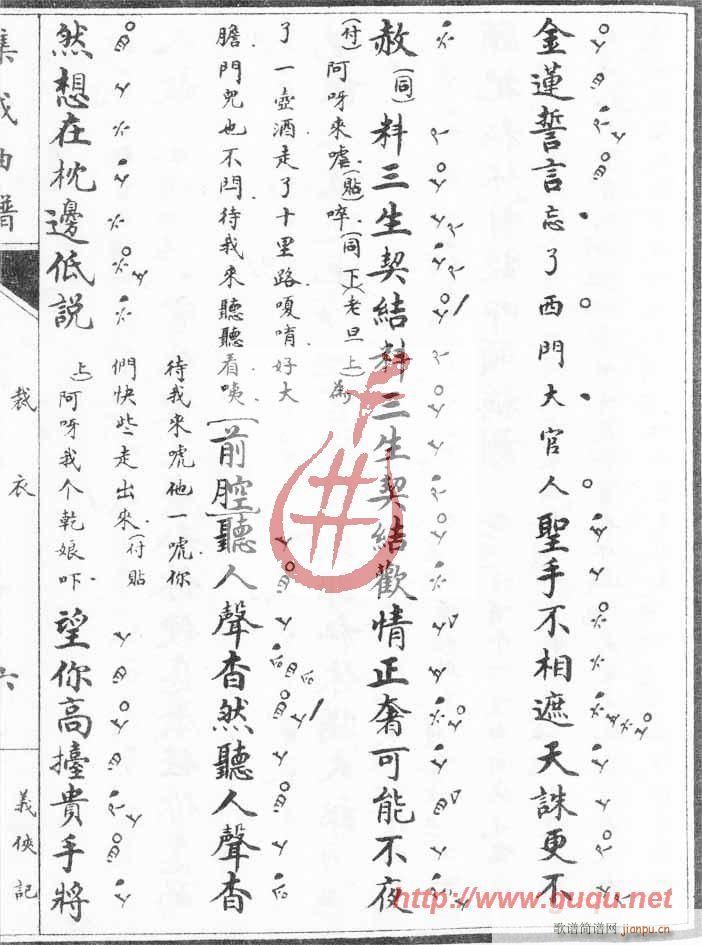 金蓮誓言忘了西門大官人聖手不相遮天誅更不
赦(同)料三生契結料三生契結歡情正奢可能不夜
(付)阿呀來噓(貼)啐(同下)(老旦上)為
了一壺酒走了十里路嗄唷好大
膽門兒也不閂待我來聽聽看咦[前腔]聽人聲杳然聽人聲杳
待我來唬他一唬你
們快些走出來(付貼
上)阿呀我个乾娘吓
然想在枕邊低説
望你高擡貴手將
集成曲譜
裁衣
六
義俠記
http://www.guqu.net
歌谱简谱网 jianpu.cn